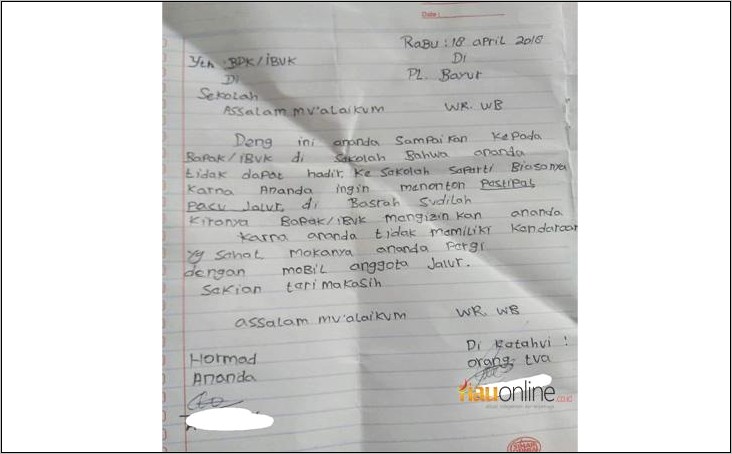 Date:
RaBu : 18 april 2018
Yth : BPK/iBUK
Di
Di
PL. Barur
Sekolah
ASSalam mu'alaikum WR. WB
Deng ini ananda SamPaikan KePada
BaPak/iBUK di Sekolah Bahwa ananda
tidak dapat hadir. Ke Sakolah SaParti Biasanya
Karna Ananda ingin menonton PastiPal
Pacu Jalur. di Basrah Sudilah
Kiranya BaPak/iBUK mangizin kan ananda
Karna ananda tidak memiliki Kandaraan
yg Sahat makanya ananda Pargi
dengan moBil anggota Jalur.
Sakian tarimakasih
assalam mu'alaikum WR. WB
Di Katahui :
Hormad
orang tua
Ananda
riauonline.co.id